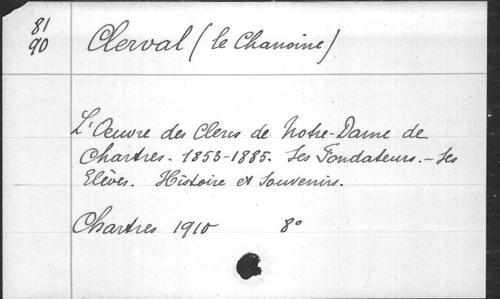 81
90
Clerval (le Chanoine)
L'Œuvre des Clercs de Notre-Dame de
Chartres. 1853-1885. Ses Fondateurs. - Ses
Elèves. Histoire et Souvenirs.
Chartres 1910 8°